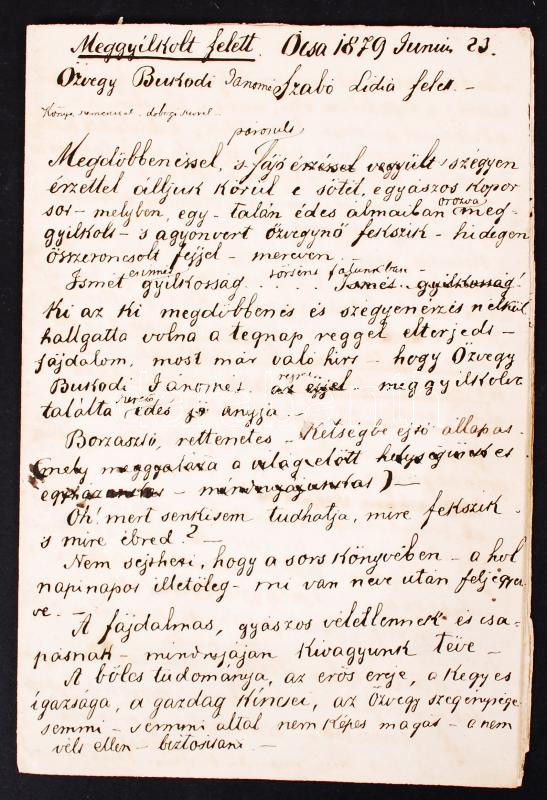 Meggyilkolt felett. Ócsa 1879 Junius 23.
Özvegy Buskodi Jánosné Szabó Lidia felett. –
párosult
Megdöbbenéssel, 's fájó érzéssel vegyült szégyen
érzettel álljuk körül e sötét, egyászos kopor
sot – melyben, egy – talán édes álmaiban orozva meg-
gyilkolt – 's agyonvert özvegynő fekszik – hidegen
összeroncsolt fejjel – mereven
Ismét gyilkosság . . . . . Ismét gyilkosság!
Ki az ki megdöbbenés és szégyenérzés nélkül
hallgatta volna a tegnap reggel elterjedt –
fájdalom, most már való hírt – hogy Özvegy
Buskodi Jánosnét reggel az éjjel meggyilkolva
találta édes jó anyja. –
Borzasztó, rettenetes – Kétségbe ejtő állapot –
(mely meggyalázza a világ előtt helységünket
– mindnyájunkat) –
Oh! mert senkisem tudhatja, mire fekszik
's mire ébred? –
Nem sejtheti, hogy a sors Könyvében – a hol
napi napot illetőleg – mi van neve után feljegyez
ve. –
A fájdalmas, gyászos véletlennek – és csa-
pásnak – mindnyájan Kivagyunk téve –
A bölcs tudománya, az erős ereje, a Kegyes
igazsága, a gazdag Kincsei, az Özvegy szegénysége
semmi – semmi által nem Képes magát – a nem
vélt ellen – biztosítani. –